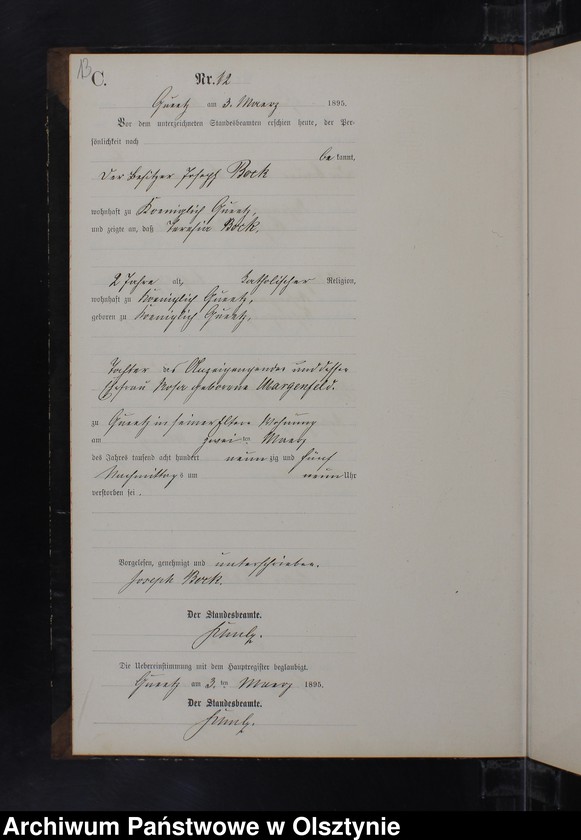 13
C.
Nr. 12
Queetz am 3. Maerz 1895.
Vor dem unterzeichneten Standesbeamten erschien heute, der Per-
sönlichkeit nach
be kannt,
Der Besitzer Joseph Bock
wohnhaft zu Koeniglich Queetz,
und zeigte an, daß Theresia Bock,
2 Jahre alt, katholischer Religion,
wohnhaft zu Koeniglich Queetz,
geboren zu Koeniglich Queetz,
Tochter des Anzeigenden und dessen
Ehefrau Rosa geborene Margenfeld.
zu Queetz in seiner Eltern Wohnung
am zwei ten Maerz
des Jahres tausend acht hundert neun zig und fünf
Nachmittags um neun Uhr
verstorben sei.
Vorgelesen, genehmigt und unterschrieben.
Joseph Bock.
Der Standesbeamte.
Die Uebereinstimmung mit dem Hauptregister beglaubigt.
Queetz am 3. ten Maerz 1895.
Der Standesbeamte.
Archiwum Państwowe w Olsztynie